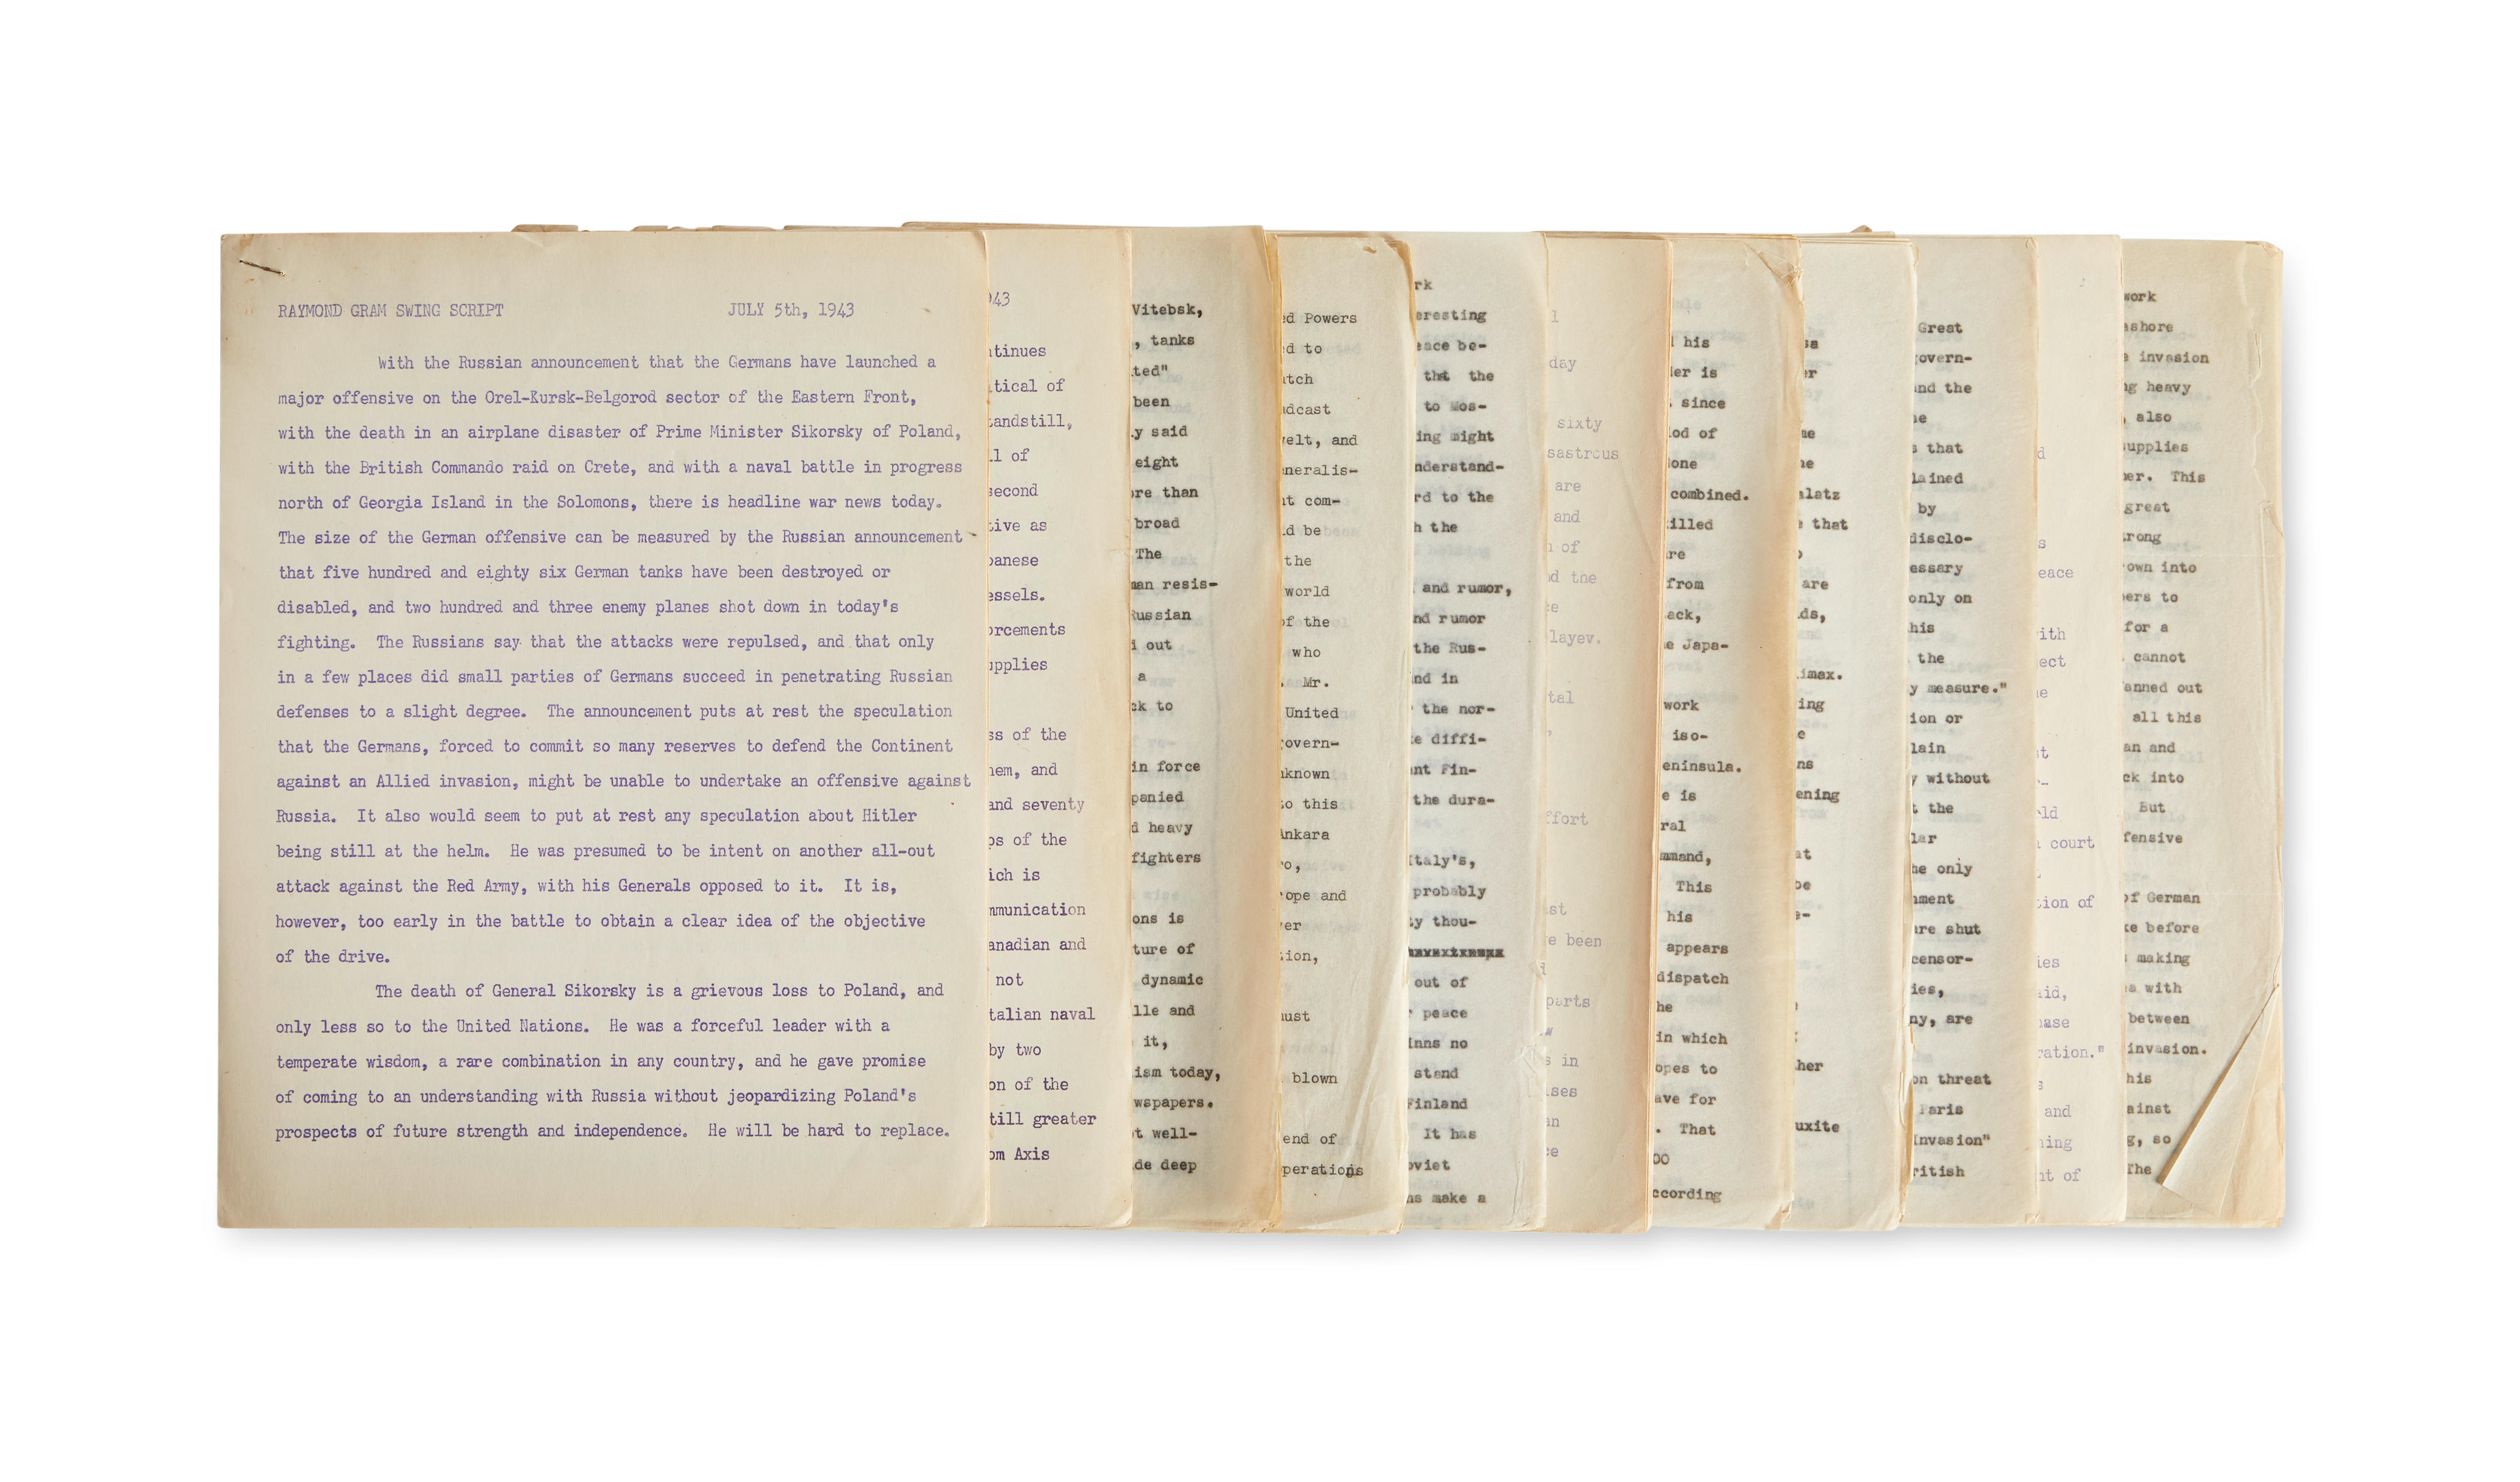 RAYMOND GRAM SWING SCRIPT JULY 5th, 1943
With the Russian announcement that the Germans have launched a
major offensive on the Orel-Kursk-Belgorod sector of the Eastern Front,
with the death in an airplane disaster of Prime Minister Sikorsky of Poland,
with the British Commando raid on Crete, and with a naval battle in progress
north of Georgia Island in the Solomons, there is headline war news today.
The size of the German offensive can be measured by the Russian announcement
that five hundred and eighty six German tanks have been destroyed or
disabled, and two hundred and three enemy planes shot down in today's
fighting. The Russians say that the attacks were repulsed, and that only
in a few places did small parties of Germans succeed in penetrating Russian
defenses to a slight degree. The announcement puts at rest the speculation
that the Germans, forced to commit so many reserves to defend the Continent
against an Allied invasion, might be unable to undertake an offensive against
Russia. It also would seem to put at rest any speculation about Hitler
being still at the helm. He was presumed to be intent on another all-out
attack against the Red Army, with his Generals opposed to it. It is,
however, too early in the battle to obtain a clear idea of the objective
of the drive.
The death of General Sikorsky is a grievous loss to Poland, and
only less so to the United Nations. He was a forceful leader with a
temperate wisdom, a rare combination in any country, and he gave promise
of coming to an understanding with Russia without jeopardizing Poland's
prospects of future strength and independence. He will be hard to replace.
43
tinues
tical of
tandstill,
l of
second
ive as
panese
essels.
orcements
upplies
ss of the
hem, and
and seventy
ps of the
ich is
mmunication
anadian and
not
talian naval
by two
on of the
till greater
om Axis
Vitebsk,
, tanks
ted"
been
y said
eight
ore than
broad
The
man resis-
Russian
d out
a
ck to
in force
panied
d heavy
fighters
ons is
ture of
dynamic
lle and
it,
ism today,
wspapers.
t well-
de deep
ed Powers
d to
atch
adcast
velt, and
neralis-
at com-
d be
the
world
of the
who
. Mr.
United
overn-
known
to this
Ankara
o,
rope and
er
tion,
must
blown
end of
perations
rk
eresting
eace be-
that the
to Mos-
ing might
nderstand-
rd to the
h the
and rumor,
nd rumor
the Rus-
nd in
the nor-
e diffi-
nt Fin-
the dura-
Italy's,
probably
ty thou-
out of
peace
inns no
stand
Finland
It has
oviet
ns make a
l
day
sixty
sastrous
are
and
of
d the
e
layev.
tal
ffort
st
e been
parts
s in
ses
an
ce
his
er is
since
od of
one
combined.
illed
re
from
ack,
e Japa-
work
iso-
eninsula.
e is
ral
mmand,
This
his
appears
dispatch
he
in which
opes to
ave for
. That
00
ccording
sa
er
me
he
alatz
that
are
ds,
imax.
ing
e
ns
ening
at
be
e-
her
uxite
Great
overn-
and the
he
s that
lained
by
disclo-
essary
only on
his
the
y measure."
ion or
lain
y without
t the
lar
he only
nment
are shut
censor-
ies,
ny, are
on threat
Paris
Invasion"
ritish
d
s
eace
ith
ect
e
t
ld
court
tion of
ies
aid,
ase
ration."
s
and
ning
nt of
work
ashore
e invasion
ng heavy
, also
supplies
er. This
great
trong
own into
ers to
for a
cannot
anned out
all this
an and
ck into
But
fensive
of German
ke before
making
s with
between
invasion.
his
ainst
g, so
The